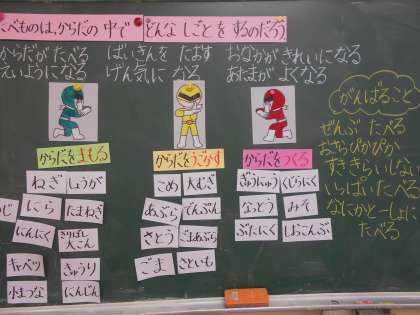 べものは、からだの中で どんなしごとをするのだろう
からだが たべる ばいきんを たおす おなかが きれいになる
えいようになる げん気に なる あたまが よくなる
からだをまもる
からだをうごかす
からだをつくる
ねぎ しょうが
にら たまねぎ
にんにく きりぼし大こん
キャベツ きゅうり
小まつな にんじん
こめ 大むぎ
あぶら でんぷん
さとう ごまあぶら
ごま さといも
ぎゅうにゅう くじらにく
なっとう みそ
ぶたにく しおこんぶ
がんばること
ぜんぶ たべる
おさらぴかぴか
すききらいしない
いっぱい たべる
なにかと一しょに
たべる